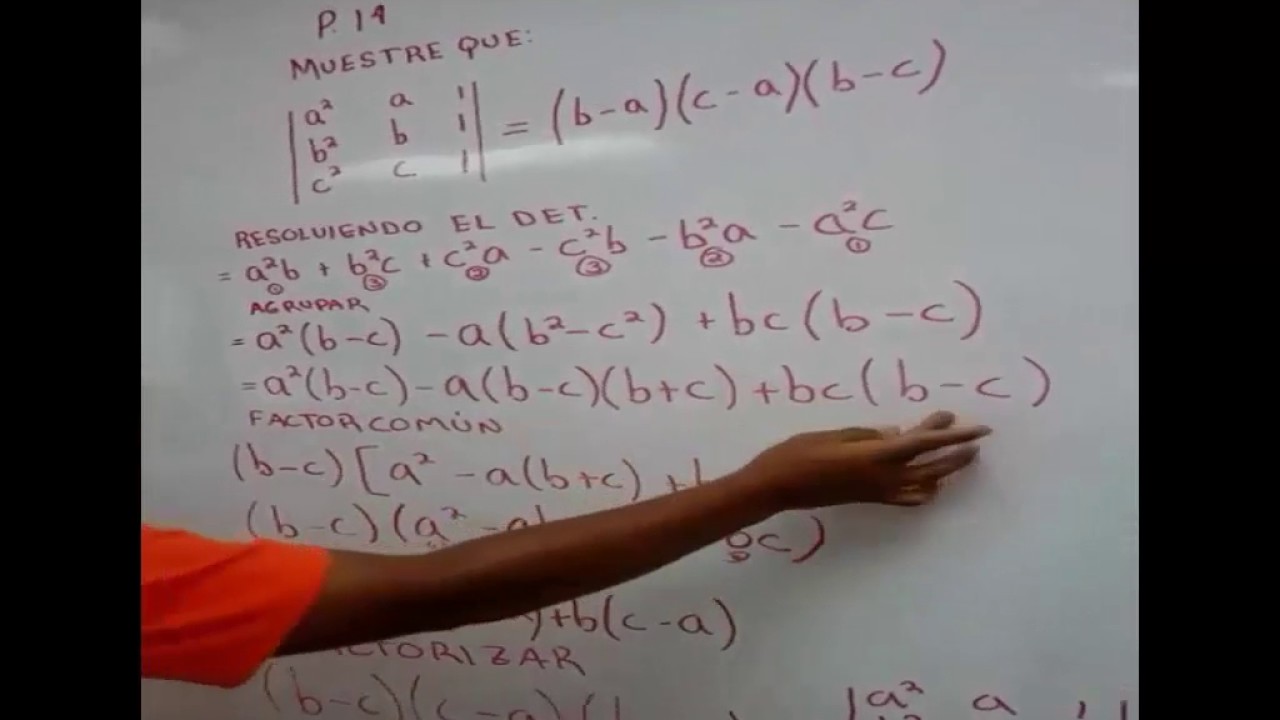 P. 14
MUESTRE QUE:
| a² a 1 |
| b² b 1 | = (b-a)(c-a)(b-c)
| c² c 1 |
RESOLVIENDO EL DET.
= a²b + b²c + c²a - c²b - b²a - a²c
① ③ ② ③ ② ①
AGRUPAR
= a²(b-c) - a(b²-c²) + bc(b-c)
= a²(b-c) - a(b-c)(b+c) + bc(b-c)
FACTOR COMÚN
(b-c)[a² - a(b+c) +
(b-c)(a² - a bc)
)+b(c-a)
(b-c)(c-a)(
|a² a 1|